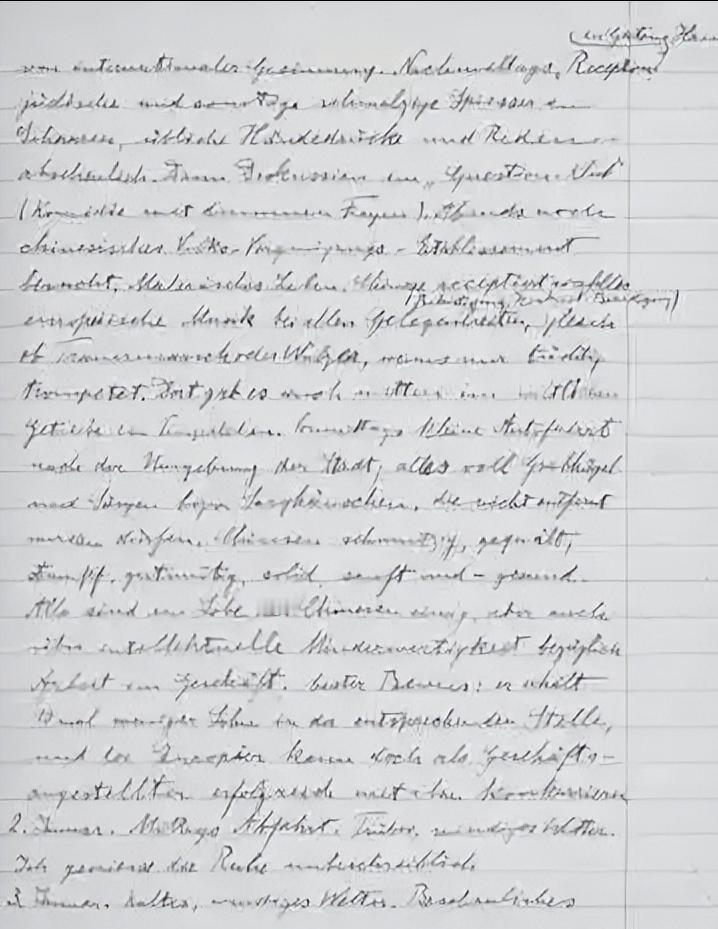 von internationaler Gesinnung. Nachmittags Reception
jüdische und sonstige schmalzige Spiesser in
Scharen, übliche Händedrücke und Reden –
abscheulich. Dann Diskussion im „Question-Klub“
(Komödie mit dummen Fragen). Abends noch
chinesisches Volks-Vergnügungs-Etablissement
besucht. Malerisches Leben. Menge alles
(Beerdigung)
europäische Musik bei allen Gelegenheiten, gleich
ob Trauermarsch oder Walzer, wenns nur tüchtig
trompetet. Dort gibt es noch mitten im
Getriebe ein Tempelchen. Vormittags kleine Autofahrt
nach der Umgebung der Stadt, alles voll Grabhügel
und Särgen bezw. Sarghäuschen, die nicht entfernt
werden dürfen. Chinesen schmutzig, gequält,
stumpf, gutmütig, solid, sanft und – gesund.
Alle sind im Lobe Chinesen einig, aber auch
ihre intellektuelle Minderwertigkeit bezüglich
Arbeit im Geschäft. bester Beweis: er erhält
10 mal weniger Lohn in der entsprechenden Stelle,
und der Europäer kann doch als Geschäfts-
angestellter erfolgreich mit ihm konkurrieren
2. Januar. Mittags Abfahrt. Trübes, windiges Wetter.
Ich geniesse die Ruhe unbeschreiblich
3. Januar. kaltes, windiges Wetter. Beschauliches